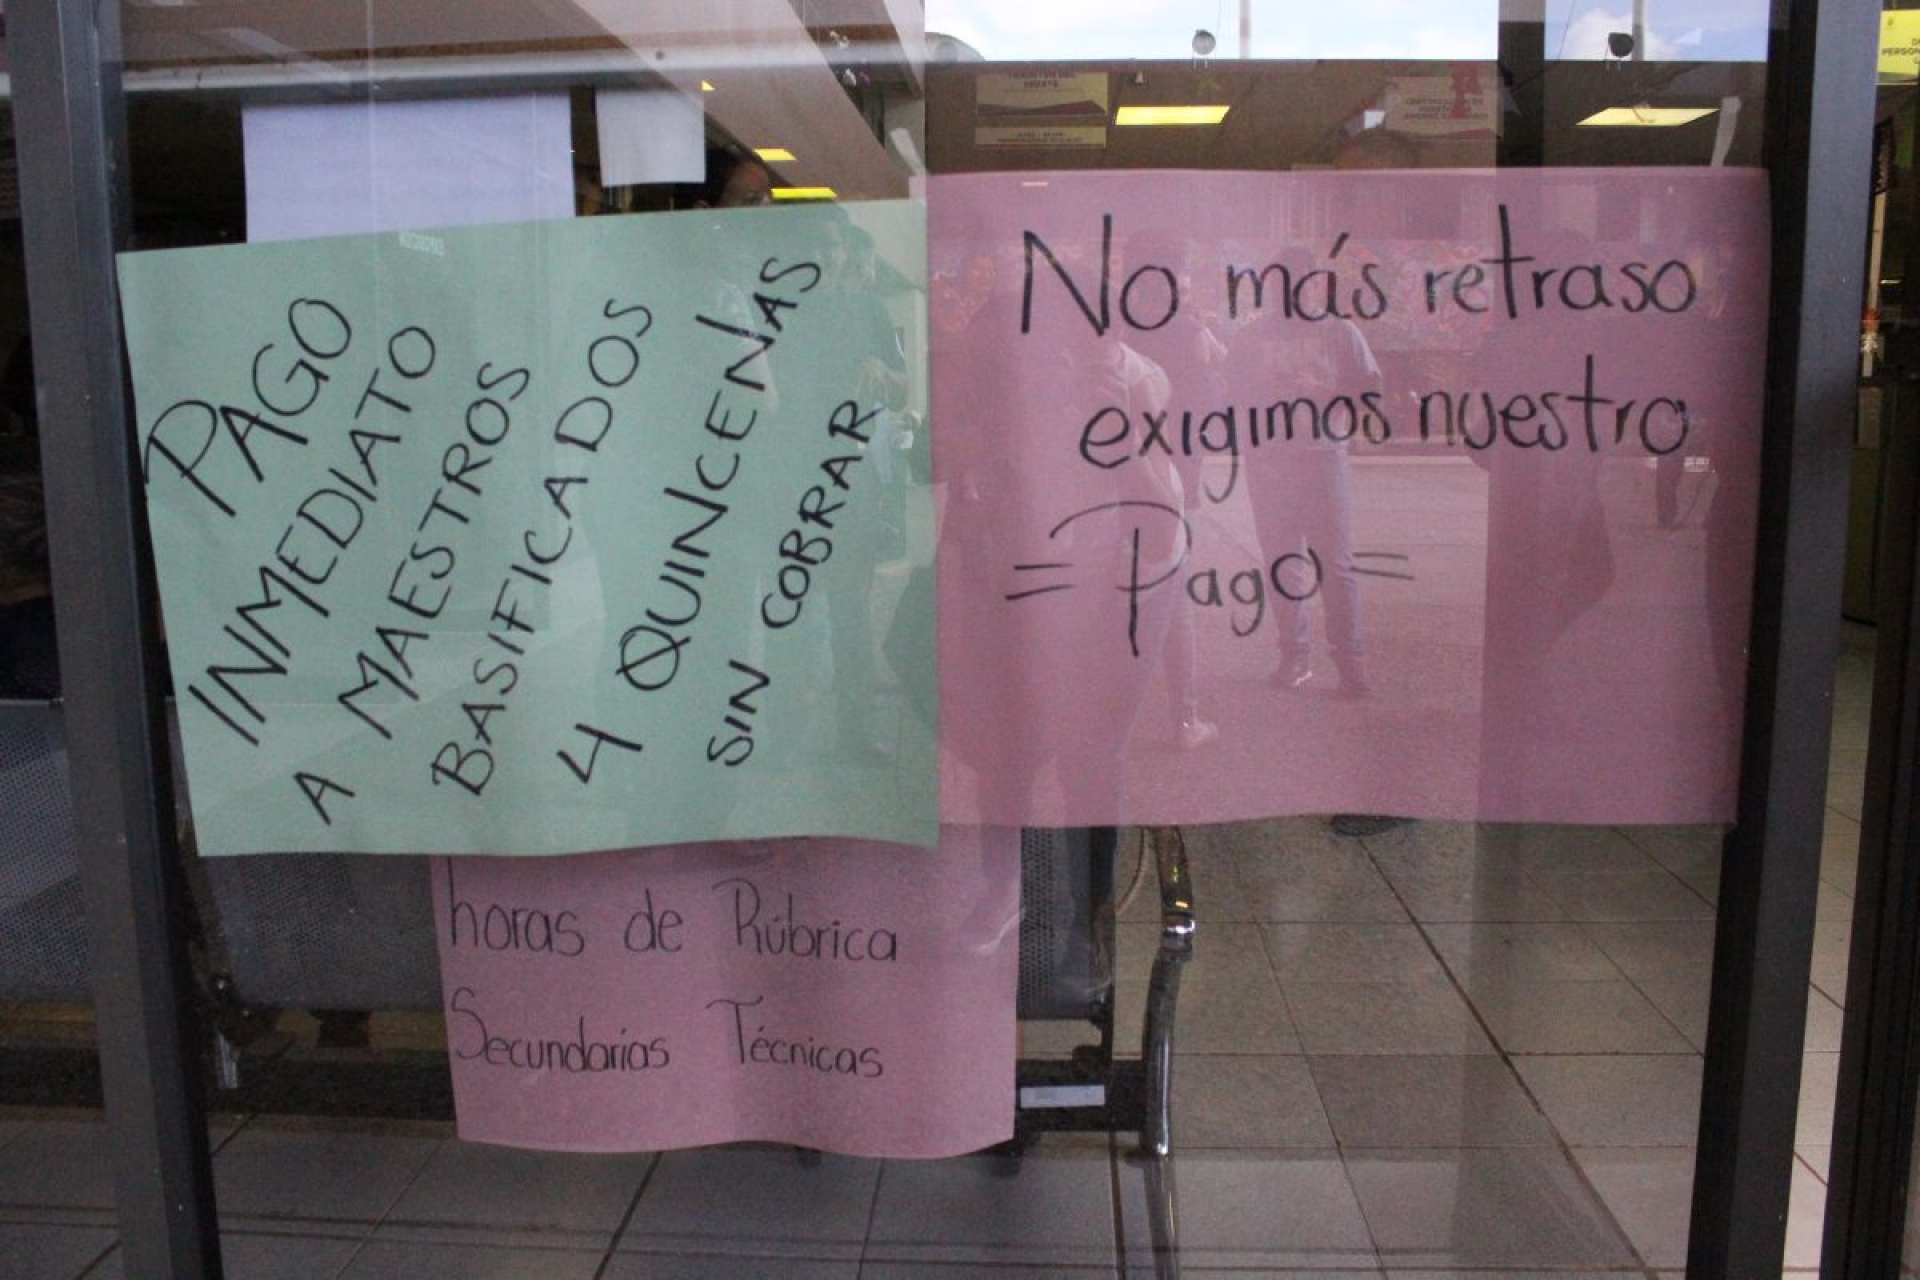 PAGO
INMEDIATO
A MAESTROS
BASIFICADOS
4 QUINCENAS
SIN COBRAR
No más retraso
exigimos nuestro
= Pago =
horas de Rúbrica
Secundarias Técnicas